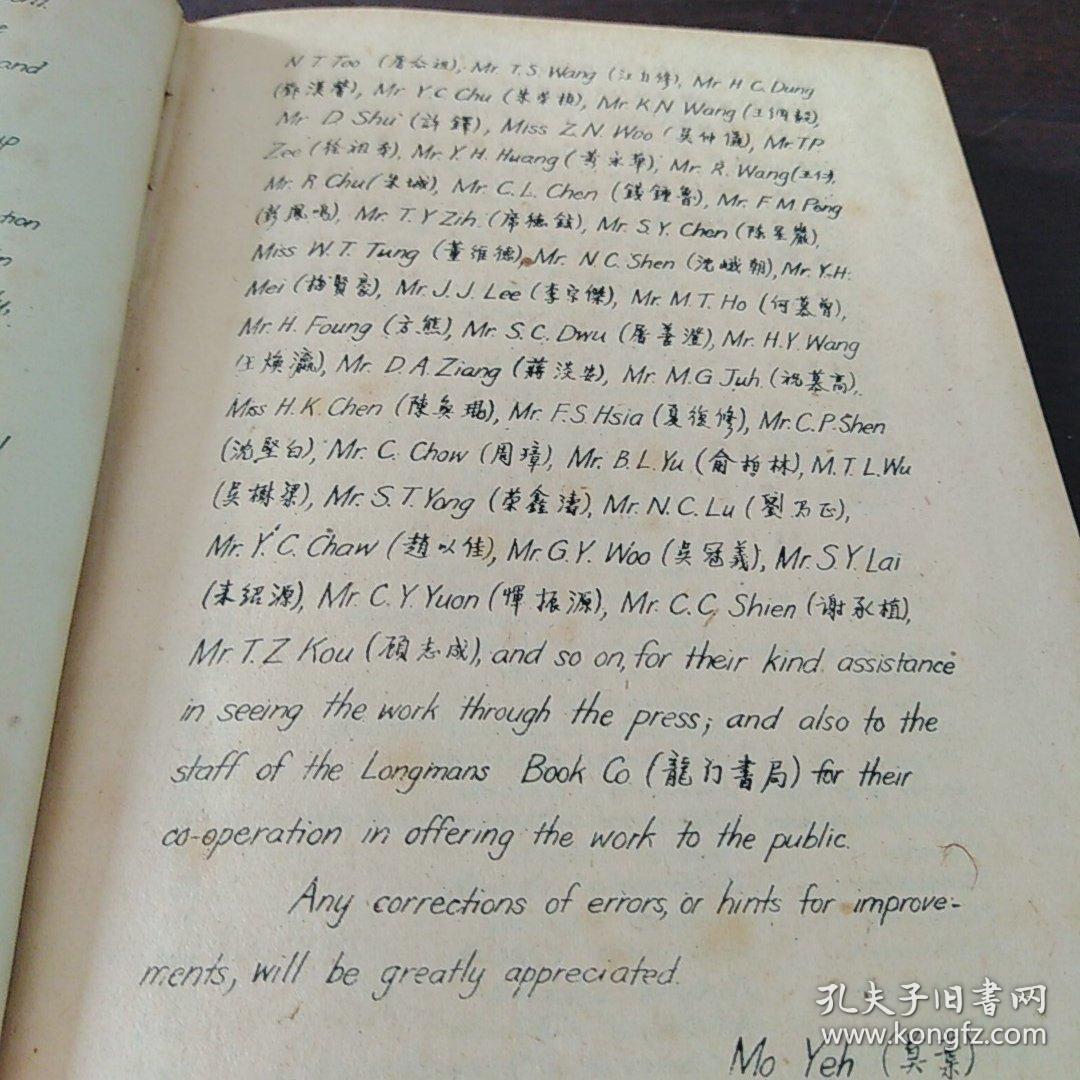 and
N T Too (屠 祖), Mr. T.S. Wang (汪自修), Mr H C. Dung
(鄧漢馨), Mr Y.C Chu (朱榮楨), Mr. K.N Wang (王佩毅),
Mr D. Shu (許鐸), Miss Z.N. Woo (吳仲儀), Mr TP
Zee (徐祖), Mr. Y.H. Huang (黃永華), Mr. R. Wang (王
Mr. R Chu (朱城), Mr. C.L. Chen (錢鍾魯), Mr. F M. Pong
(彭鳳鳴), Mr. T.Y Zih. (席德鉉), Mr. S.Y. Chen (陳星巖),
Miss W.T. Tung (董維德), Mr. N.C. Shen (沈峨朝), Mr. Y.H.
Mei (梅賢豪), Mr. J.J. Lee (李宗傑), Mr. M.T. Ho (何慕曾),
Mr. H. Foung (方熊), Mr. S.C. Dwu (屠善澄), Mr. H.Y. Wang
(王煥瀛), Mr. D.A. Ziang (蔣淡安), Mr. M.G Juh. (祝慕高),
Miss H.K. Chen (陳奐琨), Mr. F.S. Hsia (夏復修), Mr. C.P. Shen
(沈堅白), Mr. C. Chow (周璋), Mr. B.L. Yu (俞柏林), M.T.L. Wu
(吳樹梁), Mr. S.T. Yong (榮鑫濤), Mr. N.C. Lu (劉乃正),
Mr. Y. C. Chaw (趙以佳), Mr. G.Y. Woo (吳冠義), Mr. S.Y. Lai
(耒紹源), Mr. C.Y. Yuon (惲振源), Mr. C.C. Shien (谢承植),
Mr. T.Z Kou (顾志成), and so on, for their kind assistance
in seeing the work through the press; and also to the
staff of the Longmans Book Co. (龍门書局) for their
co-operation in offering the work to the public.
Any corrections of errors, or hints for improve-
ments, will be greatly appreciated.
Mo Yeh (莫葉)
孔夫子旧書网
www.kongfz.com